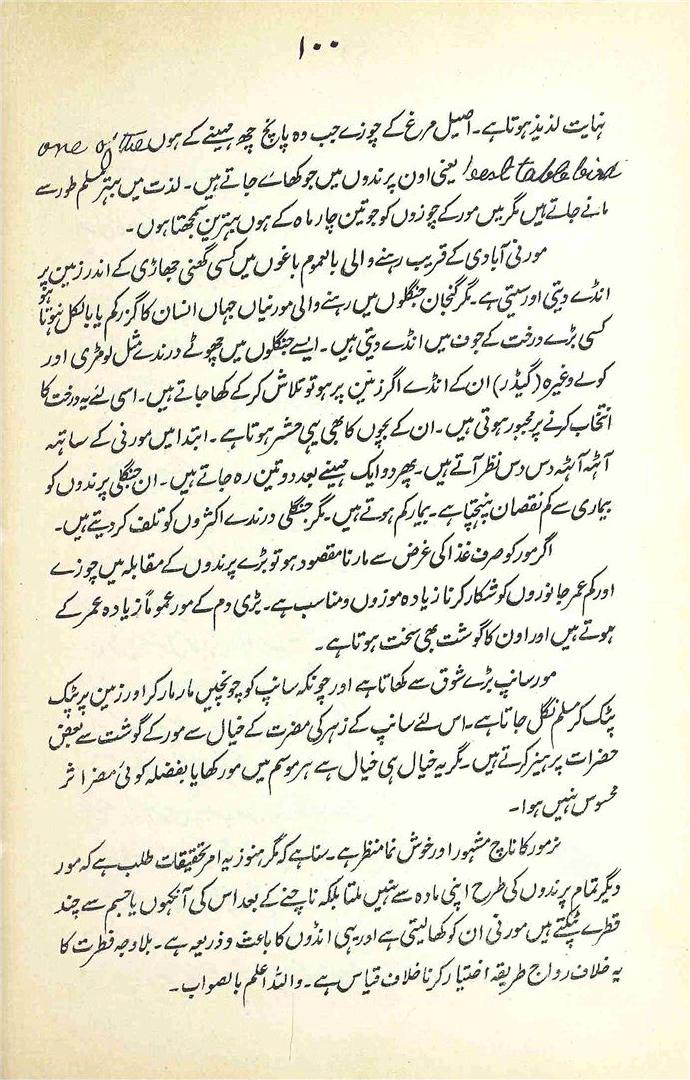 ۱۰۰
نہایت لذیذ ہوتا ہے۔ اصیل مرغ کے چوزے جب وہ پانچ چھ مہینے کے ہوں one of the
best table bird یعنی اون پرندوں میں جو کھاے جاتے ہیں۔ لذت میں بہتر مسلم طور سے
مانے جاتے ہیں مگر میں مور کے چوزوں کو جو تین چار ماہ کے ہوں بہترین سمجھتا ہوں۔
مورنی آبادی کے قریب رہنے والی بالعموم باغوں میں کسی گھنی جھاڑی کے اندر زمین پر
انڈے دیتی اور سیتی ہے۔ مگر گنجان جنگلوں میں رہنے والی مورنیاں جہاں انسان کا گزر کم یا بالکل نہوتا ہو
کسی بڑے درخت کے جوف میں انڈے دیتی ہیں۔ ایسے جنگلوں میں چھوٹے درندے مثل لومڑی اور
کولے وغیرہ (گیڈر) ان کے انڈے اگر زمین پر ہو تو تلاش کر کے کھا جاتے ہیں۔ اسی لئے یہ درخت کا
انتخاب کرنے پر مجبور ہوتی ہیں۔ ان کے بچوں کا بھی یہی حشر ہوتا ہے۔ ابتدا میں مورنی کے ساتہہ
آٹھہ آٹھہ دس دس نظر آتے ہیں۔ پھر دو ایک مہینے بعد دو تین رہ جاتے ہیں۔ ان جنگلی پرندوں کو
بیماری سے کم نقصان پہنچتا ہے۔ بیمار کم ہوتے ہیں۔ مگر جنگلی درندے اکثروں کو تلف کر دیتے ہیں۔
اگر مور کو صرف غذا کی غرض سے مارنا مقصود ہو تو بڑے پرندوں کے مقابلہ میں چوزے
اور کم عمر جانوروں کو شکار کرنا زیادہ موزوں و مناسب ہے۔ بڑی دم کے مور عموماً زیادہ عمر کے
ہوتے ہیں اور اون کا گوشت بھی سخت ہوتا ہے۔
مور سانپ بڑے شوق سے کھاتا ہے اور چونکہ سانپ کو چونچیں مار مار کر اور زمین پر پٹک
پٹک کر مسلم نگل جاتا ہے۔ اس لئے سانپ کے زہر کی مضرت کے خیال سے مور کے گوشت سے بعض
حضرات پرہیز کرتے ہیں۔ مگر یہ خیال ہی خیال ہے ہر موسم میں مور کھایا بفضلہ کوئی مضر اثر
محسوس نہیں ہوا۔
نر مور کا ناچ مشہور اور خوش نما منظر ہے۔ سنا ہے کہ مگر ہنوز یہ امر تحقیقات طلب ہے کہ مور
دیگر تمام پرندوں کی طرح اپنی مادہ سے نہیں ملتا بلکہ ناچنے کے بعد اس کی آنکہوں یا جسم سے چند
قطرے ٹپکتے ہیں مورنی ان کو کھا لیتی ہے اور یہی انڈوں کا باعث و ذریعہ ہے۔ بلاوجہ فطرت کا
یہ خلاف رواج طریقہ اختیار کرنا خلاف قیاس ہے۔ واللہ اعلم بالصواب۔